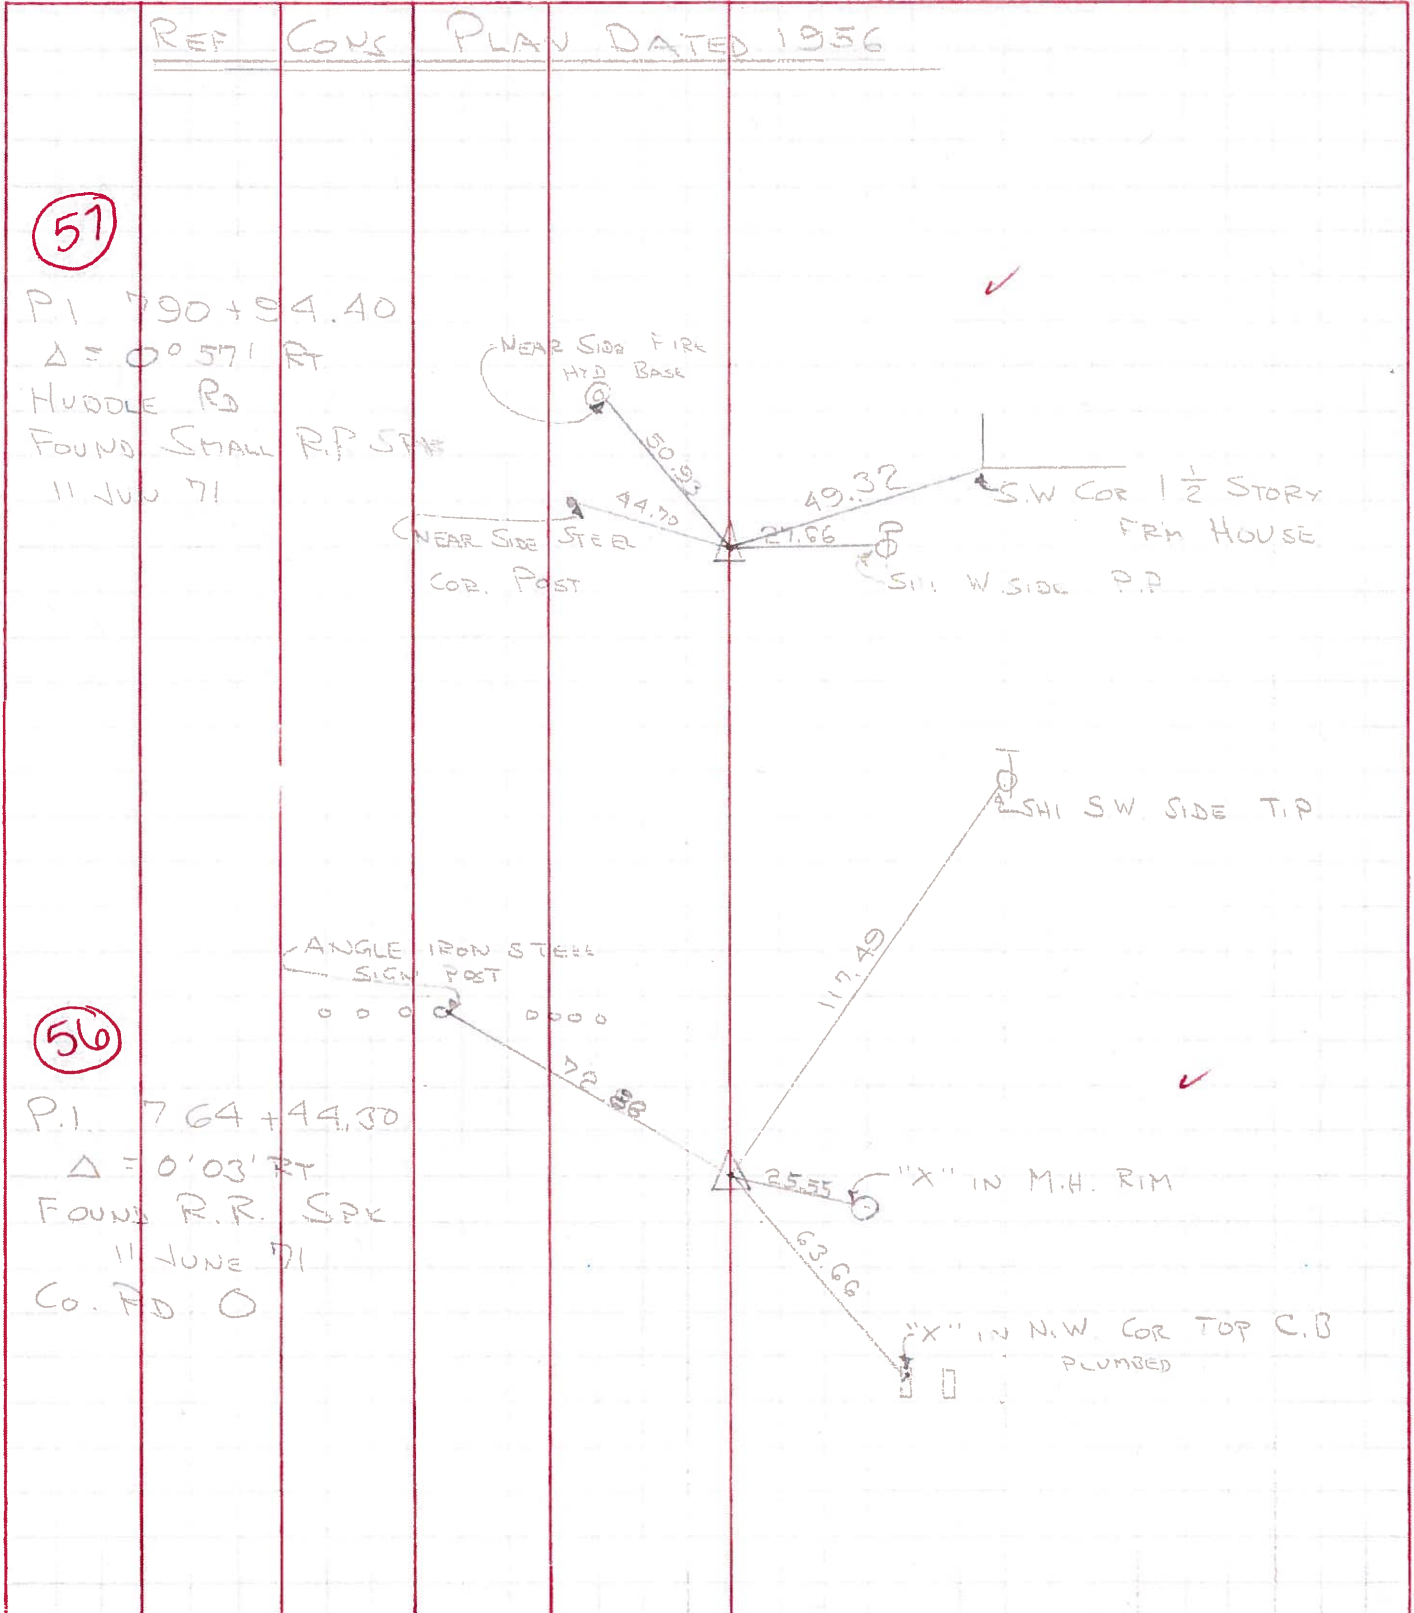 REF CONS PLAN DATED 1956
57
P.I 790+94.40
Δ = 0° 57' RT
HUDDLE RD
FOUND SMALL R.P SPK
11 JUN 71
NEAR SIDE FIRE
HYD BASE
50.93
44.70
NEAR SIDE STEEL
COR. POST
49.32
S.W COR 1 1/2 STORY
FRM HOUSE
27.66
SHI W. SIDE P.P
SHI SW SIDE T.P
117.49
ANGLE IRON STEEL
SIGN POST
72
56
P.I. 764+44.30
Δ = 0'03' RT
FOUND R.R. SPK
11 JUNE 71
CO. RD O
25.55
"X" IN M.H. RIM
63.66
"X" IN N.W. COR TOP C.B
PLUMBED